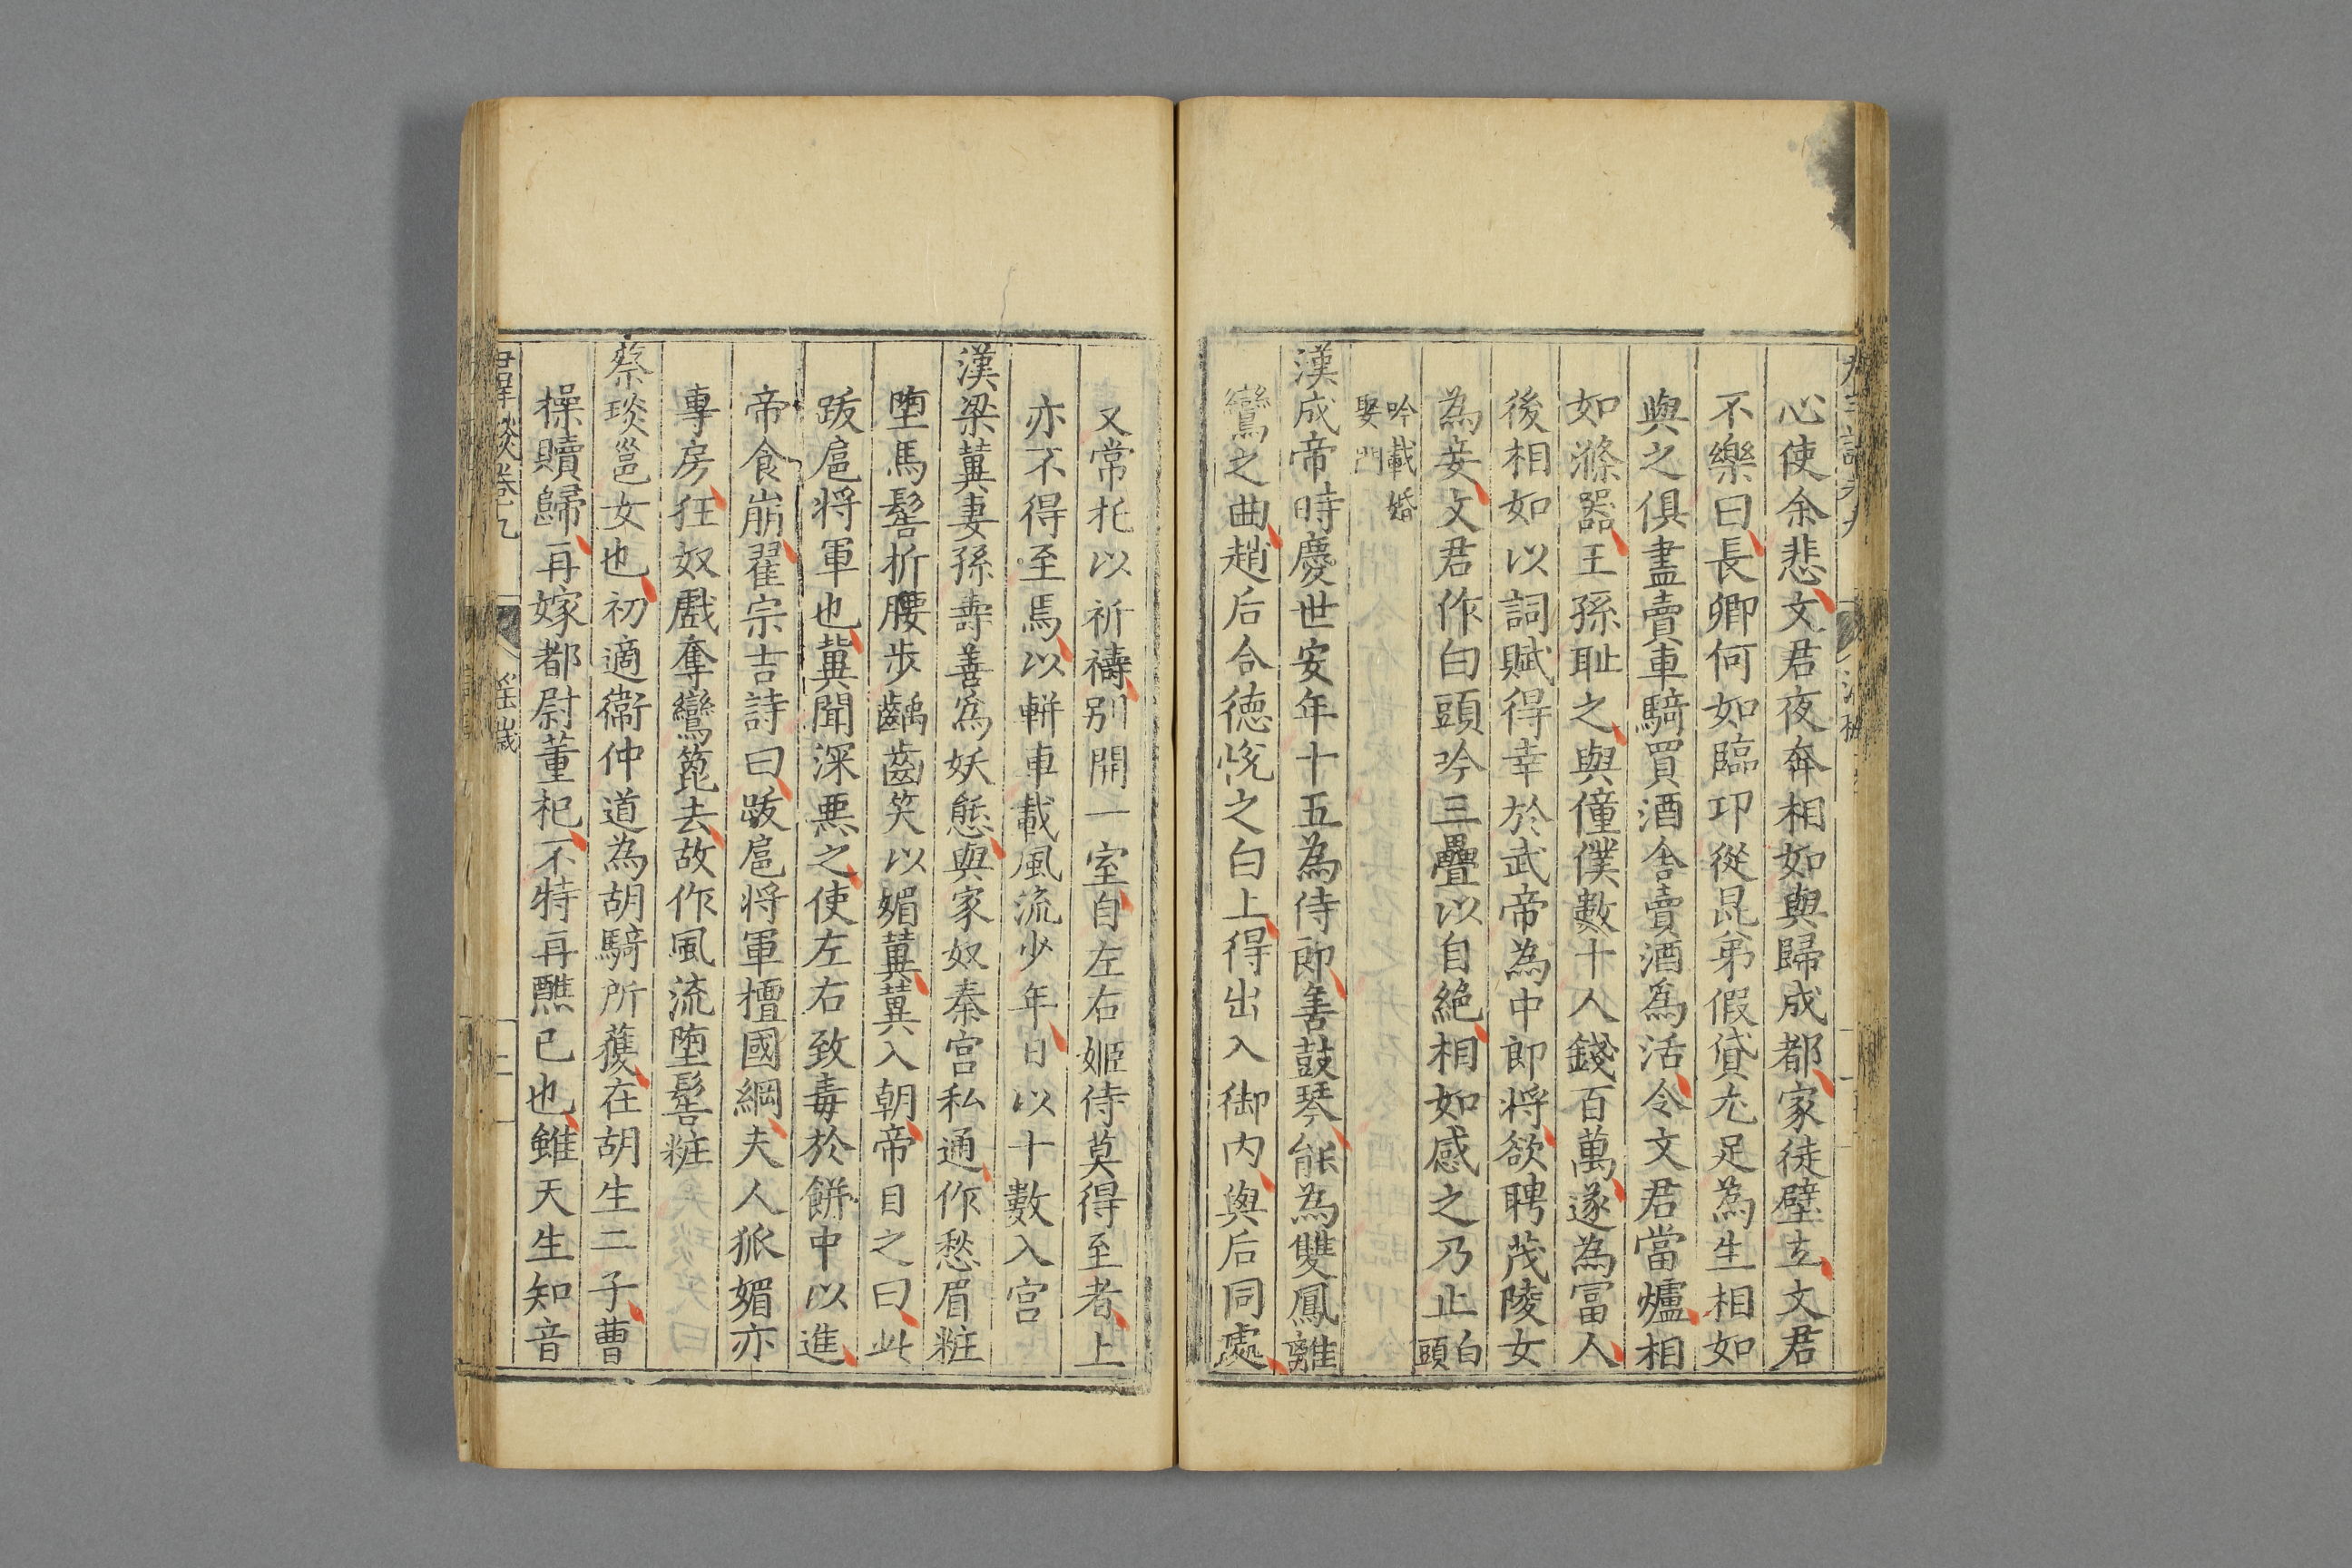 心使余悲文君夜奔相如與歸成都家徒壁立文君
不樂曰長卿何如臨卭從昆弟假貸尣足為生相如
與之俱盡賣車騎買酒舎賣酒爲活令文君當爐相
如滌器王孫耻之與僮僕數十人錢百萬遂為冨人
後相如以詞賦得幸於武帝為中郎将欲聘茂陵女
為妾文君作白頭吟三疊以自絶相如感之乃止白頭
吟載婚
娶門
漢成帝時慶世安年十五為侍郎善鼓琴能為雙鳳離
鸞之曲趙后合徳悅之白上得出入御内與后同處
又常托以祈禱别開一室自左右姬侍莫得至者上
亦不得至焉以輧車載風流少年日以十數入宫
漢梁冀妻孫壽善爲妖態與家奴秦宫私通作愁眉粧
墮馬髻折腰步齲齒笑以媚冀冀入朝帝目之曰此
跋扈将軍也冀聞深惡之使左右致毒於餅中以進
帝食崩翟宗吉詩曰跋扈将軍擅國綱夫人狐媚亦
專房狂奴戲奪鸞箆去故作風流墮髻粧
蔡琰邕女也初適衞仲道為胡騎所獲在胡生二子曹
操贖歸再嫁都尉董祀不特再醮已也雖天生知音
卷九